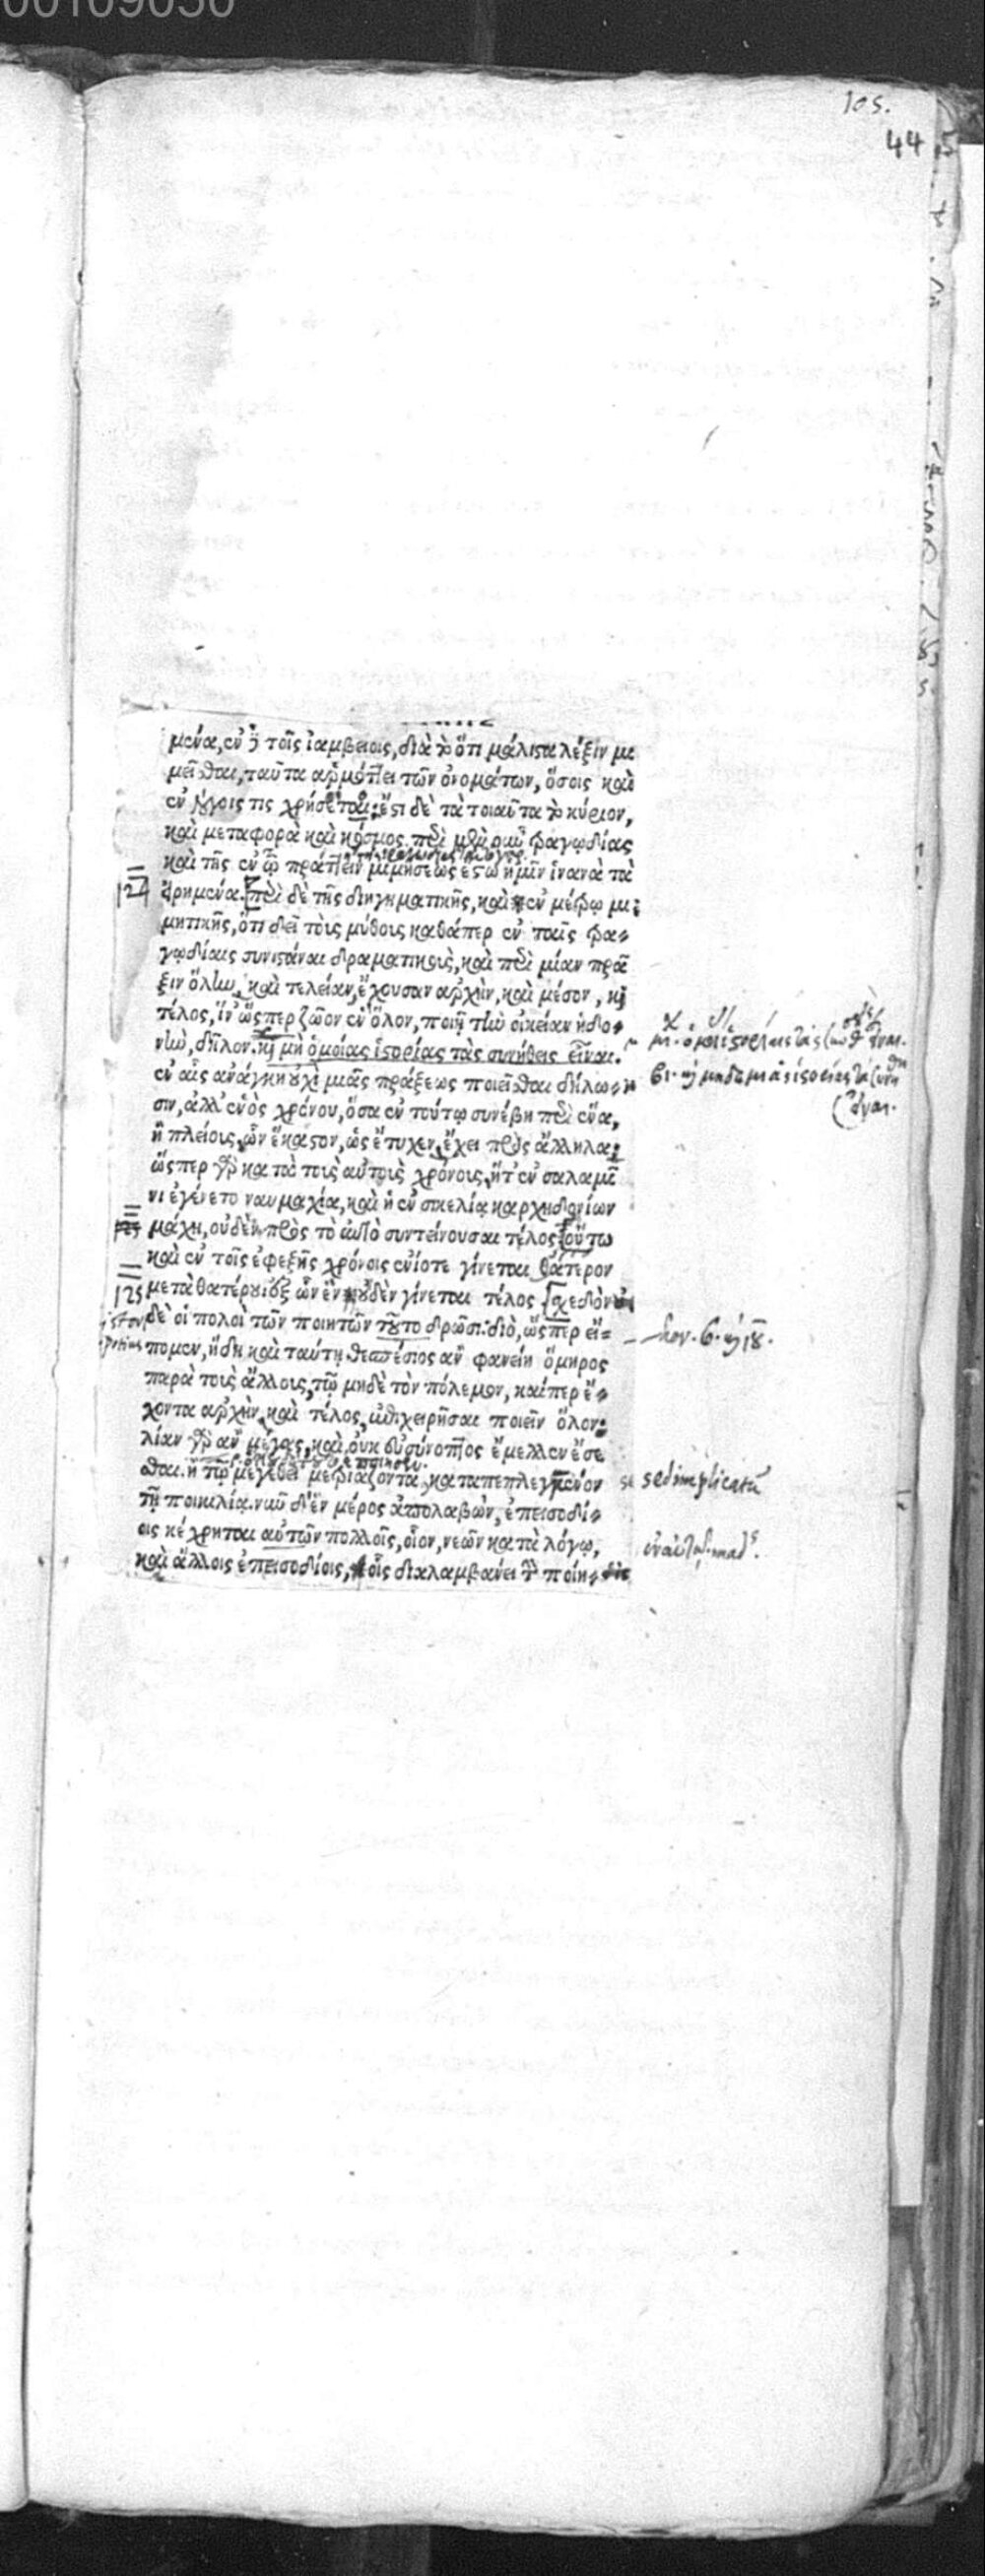 00109030
105.
44
μενα, ἐν δὲ τοῖς ἰαμβείοις, διὰ τὸ ὅτι μάλιστα λέξιν μι
μεῖσθαι, ταῦτα ἁρμόττει τῶν ὀνομάτων, ὅσοις καὶ
ἐν λόγοις τις χρήσεται. ἔστι δὲ τὰ τοιαῦτα τὸ κύριον,
καὶ μεταφορὰ καὶ κόσμος. περὶ μὲν οὖν τραγῳδίας
καὶ τῆς ἐν τῷ πράττειν μιμήσεως ἔστω ἡμῖν ἱκανὰ τὰ
124 εἰρημένα. περὶ δὲ τῆς διηγηματικῆς, καὶ ἐν μέτρῳ μι
μητικῆς, ὅτι δεῖ τοὺς μύθους καθάπερ ἐν ταῖς τρα-
γῳδίαις συνιστάναι δραματικοὺς, καὶ περὶ μίαν πρᾶ
ξιν ὅλην, καὶ τελείαν, ἔχουσαν ἀρχὴν, καὶ μέσον, καὶ
τέλος, ἵν' ὥσπερ ζῶον ἓν ὅλον, ποιῇ τὴν οἰκείαν ἡδο-
νὴν, δῆλον. καὶ μὴ ὁμοίας ἱστορίας τὰς συνήθεις εἶναι.
ἐν αἷς ἀνάγκη οὐχὶ μιᾶς πράξεως ποιεῖσθαι δήλω-
σιν, ἀλλ' ἑνὸς χρόνου, ὅσα ἐν τούτῳ συνέβη περὶ ἕνα,
ἢ πλείους, ὧν ἕκαστον, ὡς ἔτυχεν, ἔχει πρὸς ἄλληλα.
ὥσπερ γὰρ κατὰ τοὺς αὐτοὺς χρόνους, ἥτ' ἐν σαλαμῖ
νι ἐγένετο ναυμαχία, καὶ ἡ ἐν σικελίᾳ καρχηδονίων
μάχη, οὐδὲν πρὸς τὸ αὐτὸ συντείνουσαι τέλος. οὕτω
καὶ ἐν τοῖς ἐφεξῆς χρόνοις ἐνίοτε γίνεται θάτερον
125 μετὰ θατέρου, ἐξ ὧν ἓν οὐδὲν γίνεται τέλος. σχεδὸν
δὲ οἱ πολοὶ τῶν ποιητῶν τοῦτο δρῶσι. διὸ, ὥσπερ εἴ-
πομεν, ἤδη καὶ ταύτῃ θεσπέσιος ἂν φανείη ὅμηρος
παρὰ τοὺς ἄλλους, τῷ μηδὲ τὸν πόλεμον, καίπερ ἔ-
χοντα ἀρχὴν καὶ τέλος, ἐπιχειρῆσαι ποιεῖν ὅλον.
λίαν γὰρ ἂν μέγας, καὶ οὐκ εὐσύνοπτος ἔμελλεν ἔσε
σθαι. ἢ τῷ μεγέθει μετριάζοντα, καταπεπλεγμένον
τῇ ποικιλίᾳ. νῦν δ' ἓν μέρος ἀπολαβὼν, ἐπεισοδί-
οις κέχρηται αὐτῶν πολλοῖς, οἷον, νεῶν κατὰ λόγῳ,
καὶ ἄλλοις ἐπεισοδίοις, οἷς διαλαμβάνει τὴν ποίη-
sed implicatū